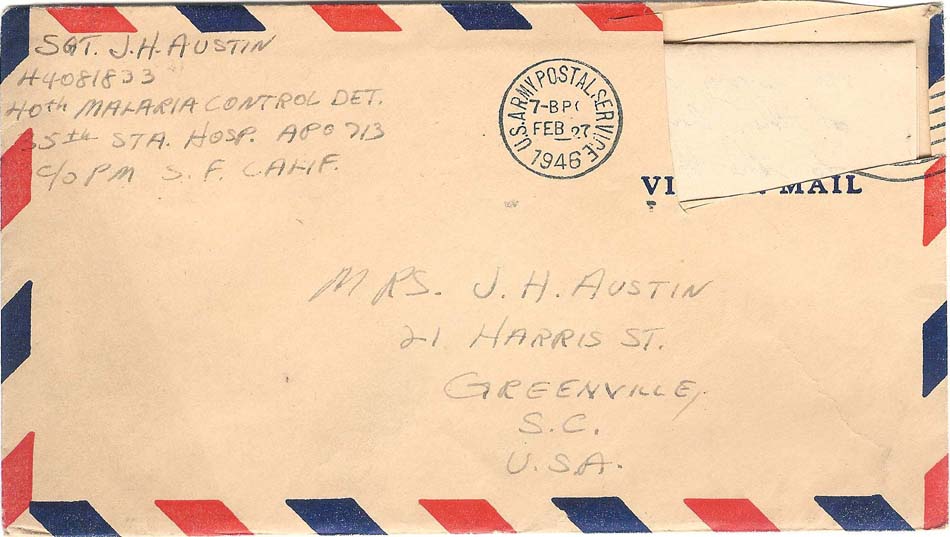 SGT. J.H. AUSTIN
H4081833
40th MALARIA CONTROL DET.
35th STA. HOSP. APO 713
C/O PM S. F. CALIF.
U.S. ARMY POSTAL SERVICE
7-BPO
FEB 27
1946
VI MAIL
MRS. J. H. AUSTIN
21 HARRIS ST.
GREENVILLE,
S.C.
U.S.A.